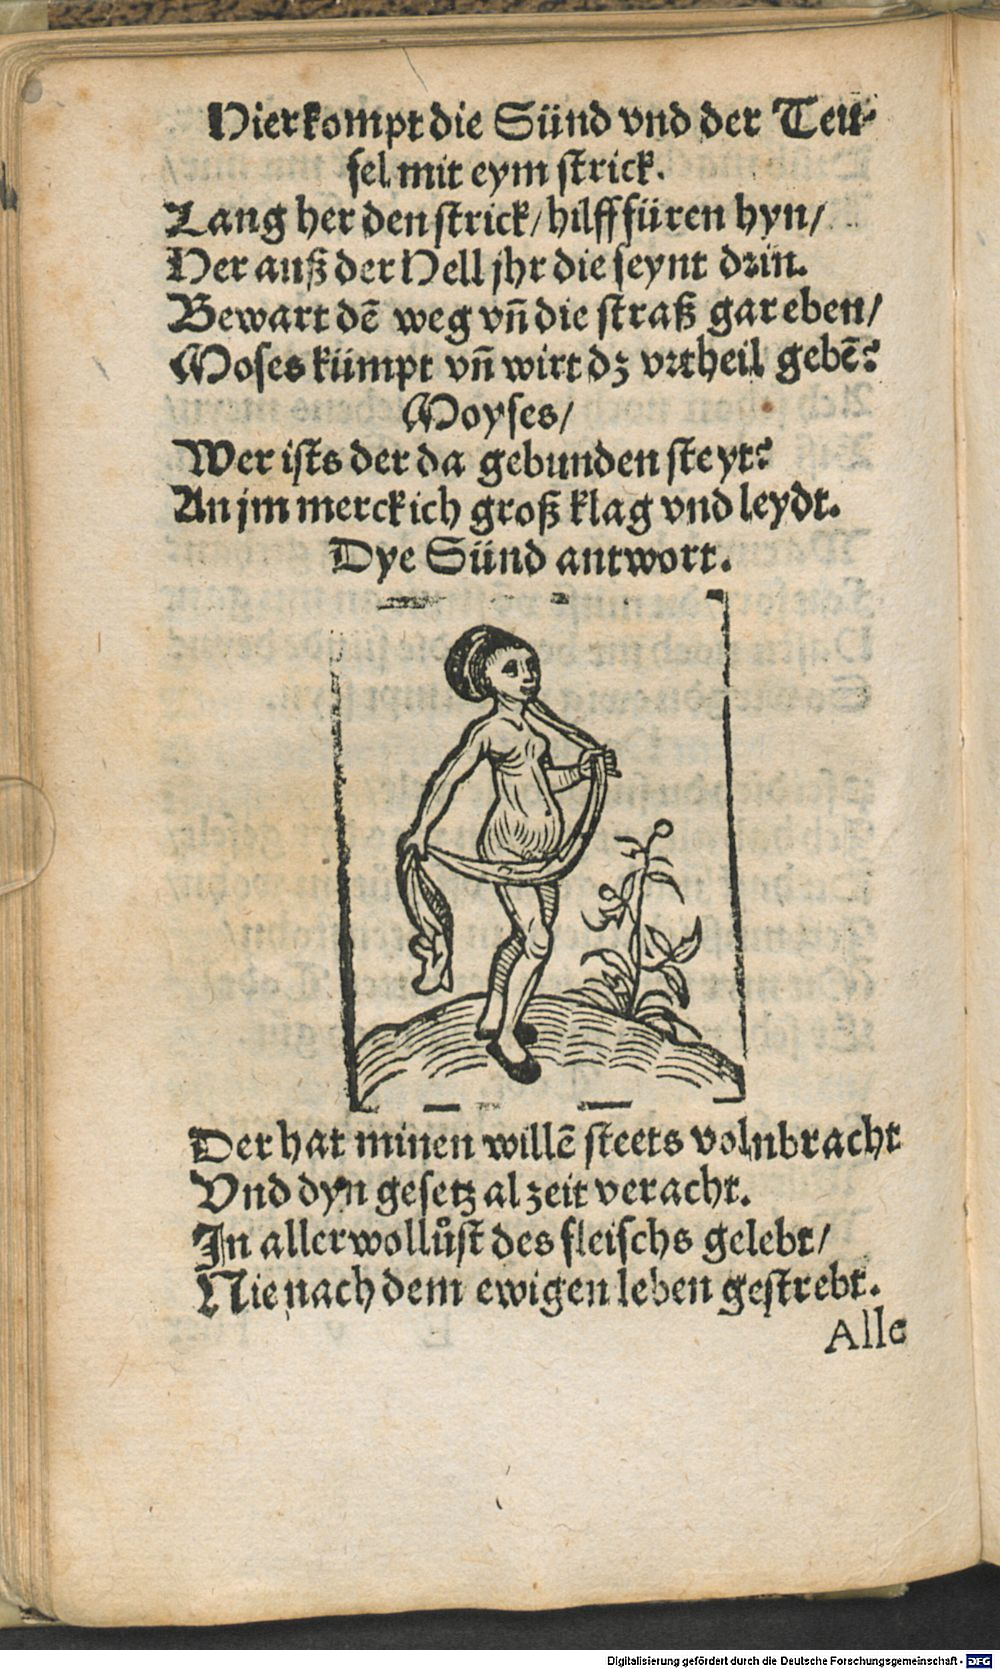 Hier kompt die Sünd vnd der Teu-
fel mit eym strick.
Lang her den strick/ hilff füren hyn/
Her auß der Hell jhr die seynt drin.
Bewart dē weg vñ die straß gar eben/
Moses kümpt vñ wirt dz vrtheil gebē?
Moyses/
Wer ists der da gebunden steyt?
An jm merck ich groß klag vnd leydt.
Dye Sünd antwort.
Der hat minen willē steets volnbracht
Vnd dyn gesetz al zeit veracht.
In aller wollůst des fleischs gelebt/
Nie nach dem ewigen leben gestrebt.
Alle
Digitalisierung gefördert durch die Deutsche Forschungsgemeinschaft - DFG